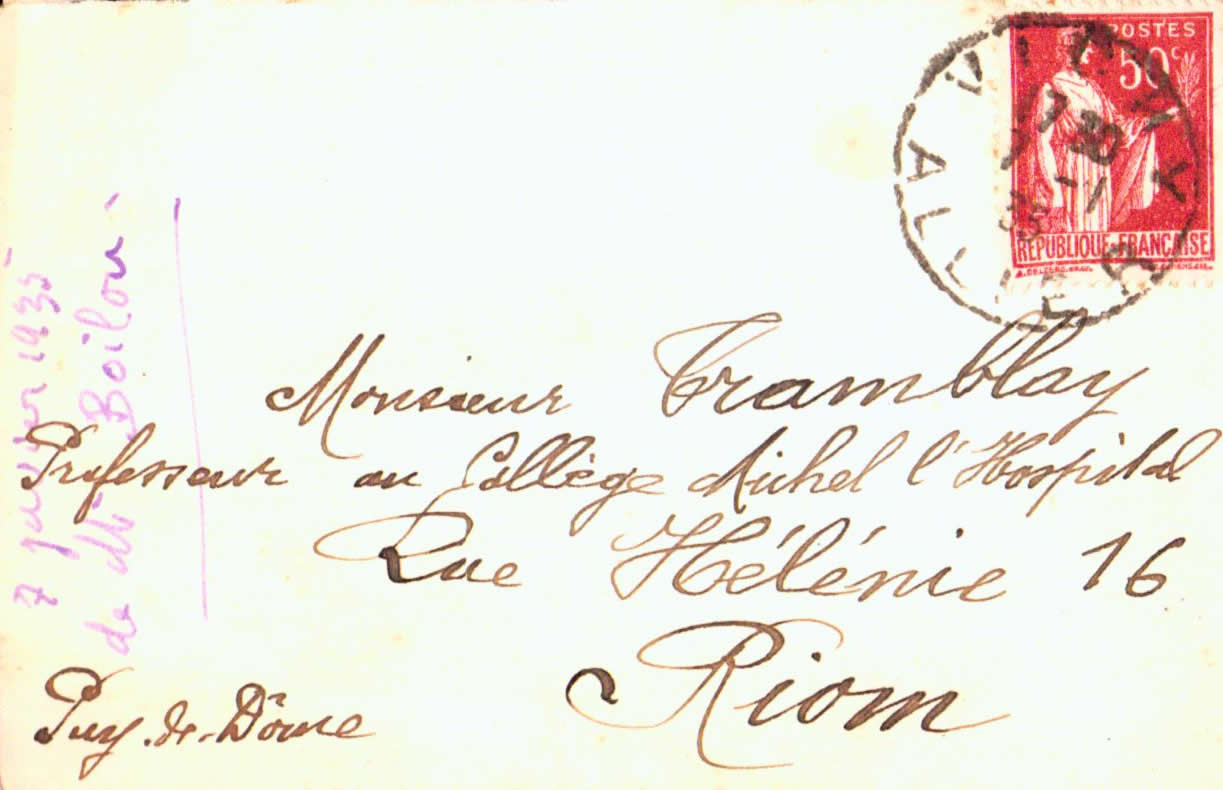 POSTES
50c
RÉPUBLIQUE FRANÇAISE
VICHY
17 30
7 -1
35
ALLIER
7 janvier 1935
de Mr Boilon
Monsieur Tramblay
Professeur au Collège Michel l'Hospital
Rue Hélénie 16
Riom
Puy-de-Dôme